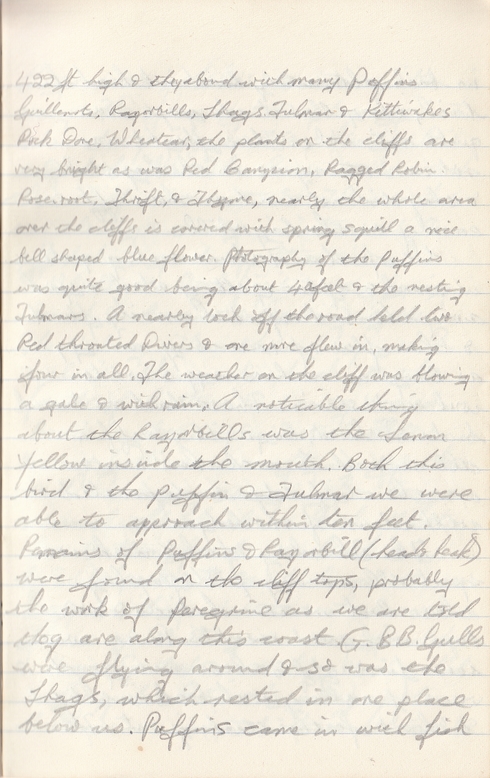 422 ft high & they abound with many Puffins
Guillemots, Razorbills, Shags, Fulmar & Kittiwakes
Rock Dove, Wheatear, the plants on the cliffs are
very bright as was Red Campion, Ragged Robin.
Rose root. Thrift, & Thyme, nearly the whole area
over the cliffs is covered with spring squill a nice
bell shaped blue flower. Photography of the Puffins
was quite good being about 4 feet & the nesting
Fulmars. A nearby loch off the road held two
Red throated Divers & one more flew in, making
four in all. The weather on the cliff was blowing
a gale & with rain. A noticable thing
about the Razorbills was the Lemon
Yellow inside the mouth. Both this
bird & the Puffin & Fulmar we were
able to approach within ten feet.
Remains of Puffins & Razorbill (heads beak)
were found on the cliff tops, probably
the work of Peregrine as we are told
they are along this coast G.B.B. Gulls
were flying around & so was the
Shags, which rested in one place
below us. Puffins came in with fish